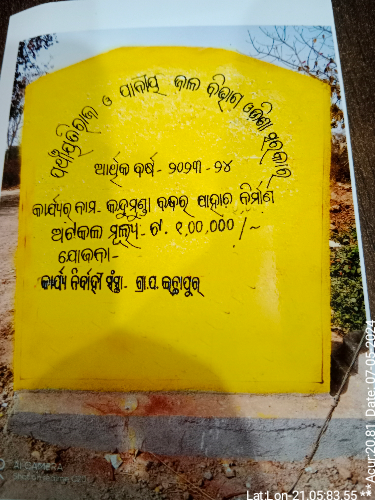 ପଞ୍ଚାୟତିରାଜ ଓ ପାନୀୟ ଜଳ ବିଭାଗ ଓଡିଶା ସରକାର
ଆର୍ଥିକ ବର୍ଷ - ୨୦୨୩ - ୨୪
କାର୍ଯ୍ୟର ନାମ - କନ୍ଦୁମୁଣ୍ଡା ବନ୍ଧର ପାହାଚ ନିର୍ମାଣ
ଅଟକଳ ମୂଲ୍ୟ - ଟ. ୧,00,000/~
ଯୋଜନା -
କାର୍ଯ୍ୟ ନିର୍ବାହୀ ସଂସ୍ଥା - ଗ୍ରା.ପ. ଇଚ୍ଛାପୁର
AI CAMERA
Lat:Lon-21.05:83.55 ** Acur:20.81 Date: 07-05-2024